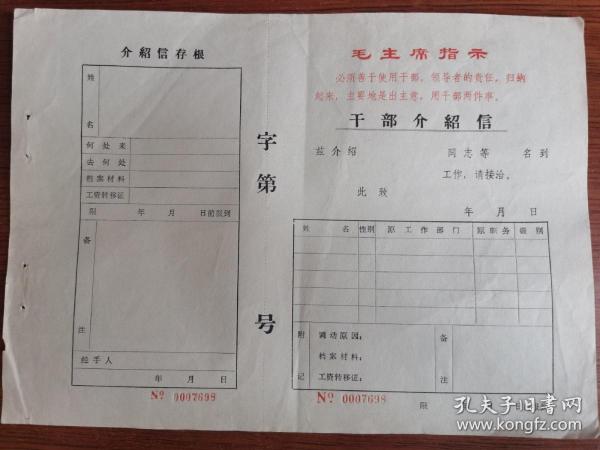 介紹信存根
姓名
何处来
去何处
档案材料
工资转移证
限 年 月 日前报到
备注
经手人
年 月 日
Nº 0007698
字第 号
毛主席指示
必须善于使用干部。领导者的责任,归纳
起来,主要地是出主意、用干部两件事。
干部介紹信
兹介绍 同志等 名到
工作,请接洽。
此致
年 月 日
姓名 性别 原工作部门 原职务 级别
附记
调动原因:
档案材料:
工资转移证:
备注
Nº 0007698
限
孔夫子旧书网
www.kongfz.com